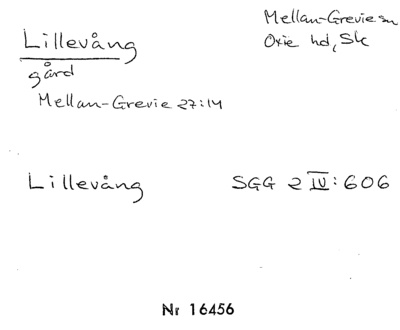 Lillevång
gård
Mellan-Grevie 27:14
Mellan-Grevie sn
Oxie hd, Sk
Lillevång SGG 2 IV:606
Nr 16456